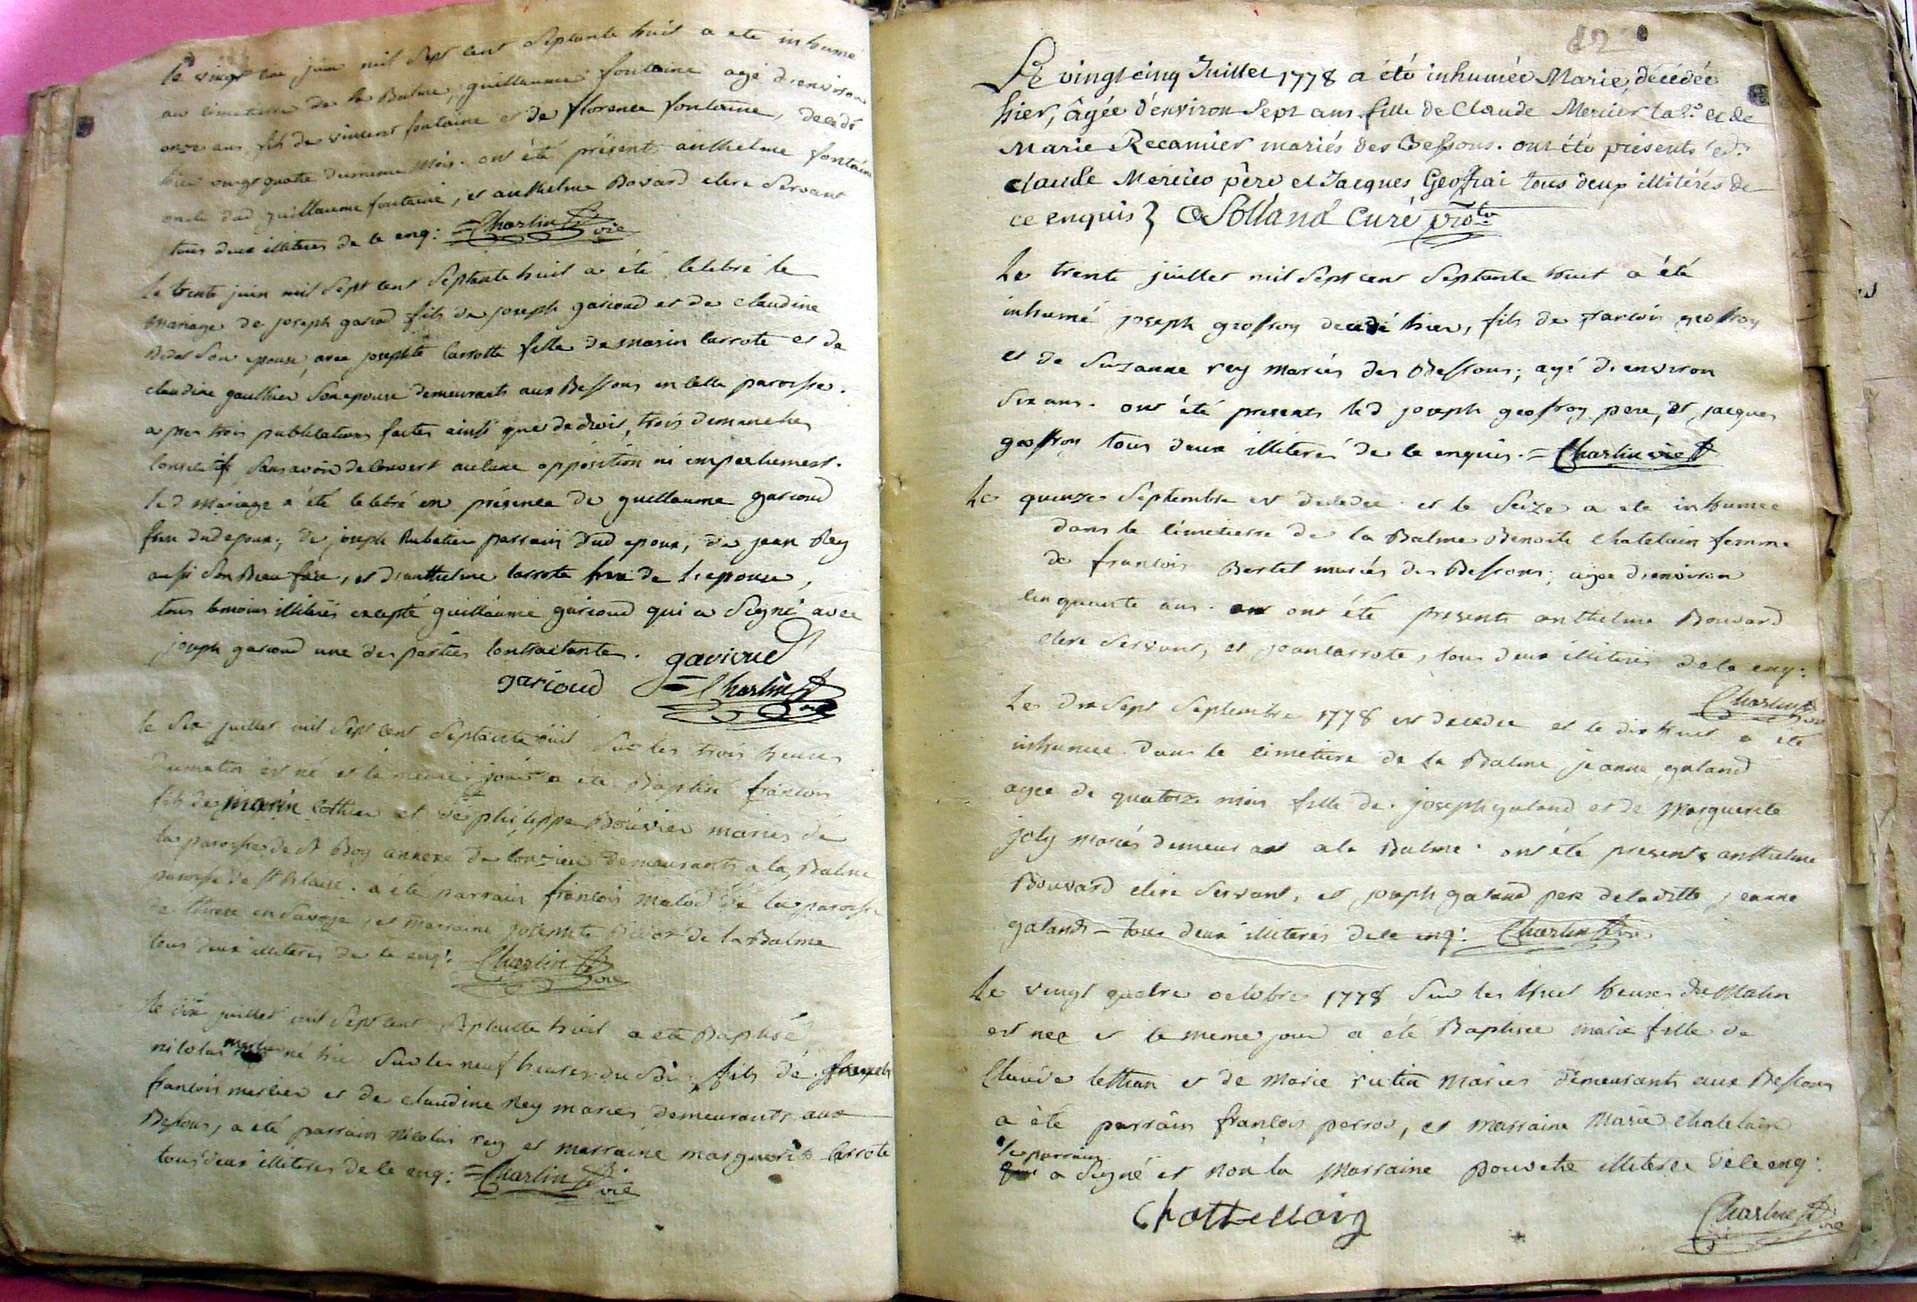 Le vingt cinq juin mil sept cent septante huit a ete inhumé
au cimetiere de la Balme, guillaume fontaine agé d'environ
onze ans, fils de vincent fontaine et de florence fontaine, decedé
hier vingt quatre du meme mois. ont été présents anthelme fontaine
oncle dud guillaume fontaine, et anthelme Bovard clerc servant
tous deux illiteres de ce enq: = Charlin vic
Le trente juin mil sept cent septante huit a été celebré le
mariage de joseph gariod fils de joseph garioud et de claudine
son epouse, avec josephte carrotte fille de marin carrote et de
claudine gaulthier son epouse demeurants aux Bessons en cette paroisse.
apres trois publications faites ainsi que de droit, trois dimanches
consecutifs, sans avoir decouvert aucune opposition ni empechement.
led mariage a été celebré en présence de guillaume garioud
frere dud epoux, de joseph Rubatier parrain dud epoux, de jean Rey
aussi son Beau frere, et d'anthelme carrote frere de l'epouse,
tous temoins illiterés excepté guillaume garioud qui a signé avec
joseph garioud une des parties contractantes. gavioud
garioud = Charlin vic
le six juillet mil sept cent septante huit sur les trois heures
du matin est né et le meme jour a ete Baptisé françois
fils de marin cottier et de philippe Bouvier mariés de
la paroisse de St Boy annexe de demeurants a la Balme
paroisse de St Blaise. a été parrain françois de la paroisse
de en Savoye, et marraine de la Balme
tous deux illiteres de ce enq: Charlin vic
Le dix juillet mil sept cent septante huit a été Baptisé
nicolas né hier sur les neuf heures du soir, fils de
françois mercier et de claudine Rey mariés demeurants aux
Bessons, a été parrain nicolas rey et marraine marguerite carrote
tous deux illiteres de ce enq: = Charlin vic
82
Le vingt cinq Juillet 1778 a été inhumée Marie, décédée
hier, âgée d'environ sept ans fille de Claude Mercier et de
Marie Recamier mariés des Bessons. ont été présents led.
claude Mercier père et Jacques Geoffrai tous deux illitérés de
ce enquis Solland Curé
Le trente juillet mil sept cent septante huit a été
inhumé joseph geoffroy decedé hier, fils de francois geoffroy
et de Suzanne rey mariés des Bessons; agé d'environ
six ans. ont été presents led joseph geoffroy pere, et jacques
geoffroy tous deux illiterés de ce enquis. = Charlin vic
Le quinze Septembre est decedee et le seize a ete inhumee
dans le cimetierre de la Balme Benoite chatelain femme
de francois Bertet mariés des Bessons; agee d'environ
cinquante ans. ont été presents anthelme Bouvard
clerc servant, et jean carrote, tous deux illiterés de ce enq:
Charlin vic
Le dix sept Septembre 1778 est decedee et le dix huit a été
inhumee dans le cimetiere de la Balme jeanne galand
agee de quatorze mois fille de joseph galand et de Marguerite
joly mariés demeurant a la Balme. ont été presents anthelme
Bouvard clerc servant, et joseph galand pere de laditte jeanne
galand = tous deux illiterés de ce enq: Charlin vic
Le vingt quatre octobre 1778 sur les huit heures du Matin
est nee et le meme jour a été Baptisee marie fille de
Claude et de Marie mariés demeurants aux Bessons
a été parrain francois perrod, et marraine Marie chatelain
le parrain
a signé et non la Marraine pour etre illiteree de ce enq:
Chattellaig
Charlin vic